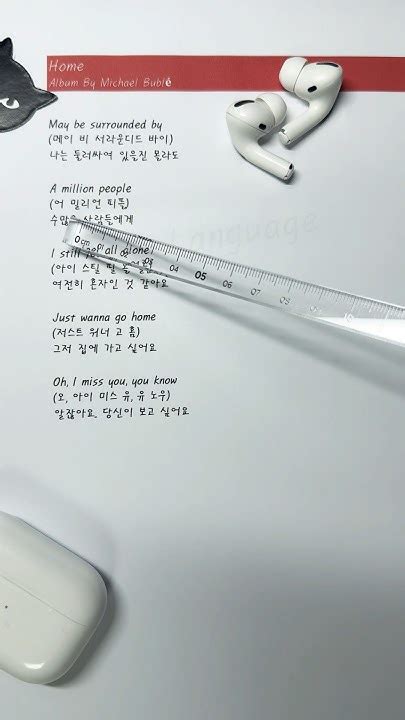 Home
Album By Michael Bublé
May be surrounded by
(메이 비 서라운디드 바이)
나는 둘러싸여 있을진 몰라도
A million people
(어 밀리언 피플)
수많은 사람들에게
I still all alone
(아이 스틸 필
여전히 혼자인 것 같아요
Just wanna go home
(저스트 워너 고 홈)
그저 집에 가고 싶어요
Oh, I miss you, you know
(오, 아이 미스 유, 유 노우)
알잖아요, 당신이 보고 싶어요
Language
0 cm 04 05 06 07 08